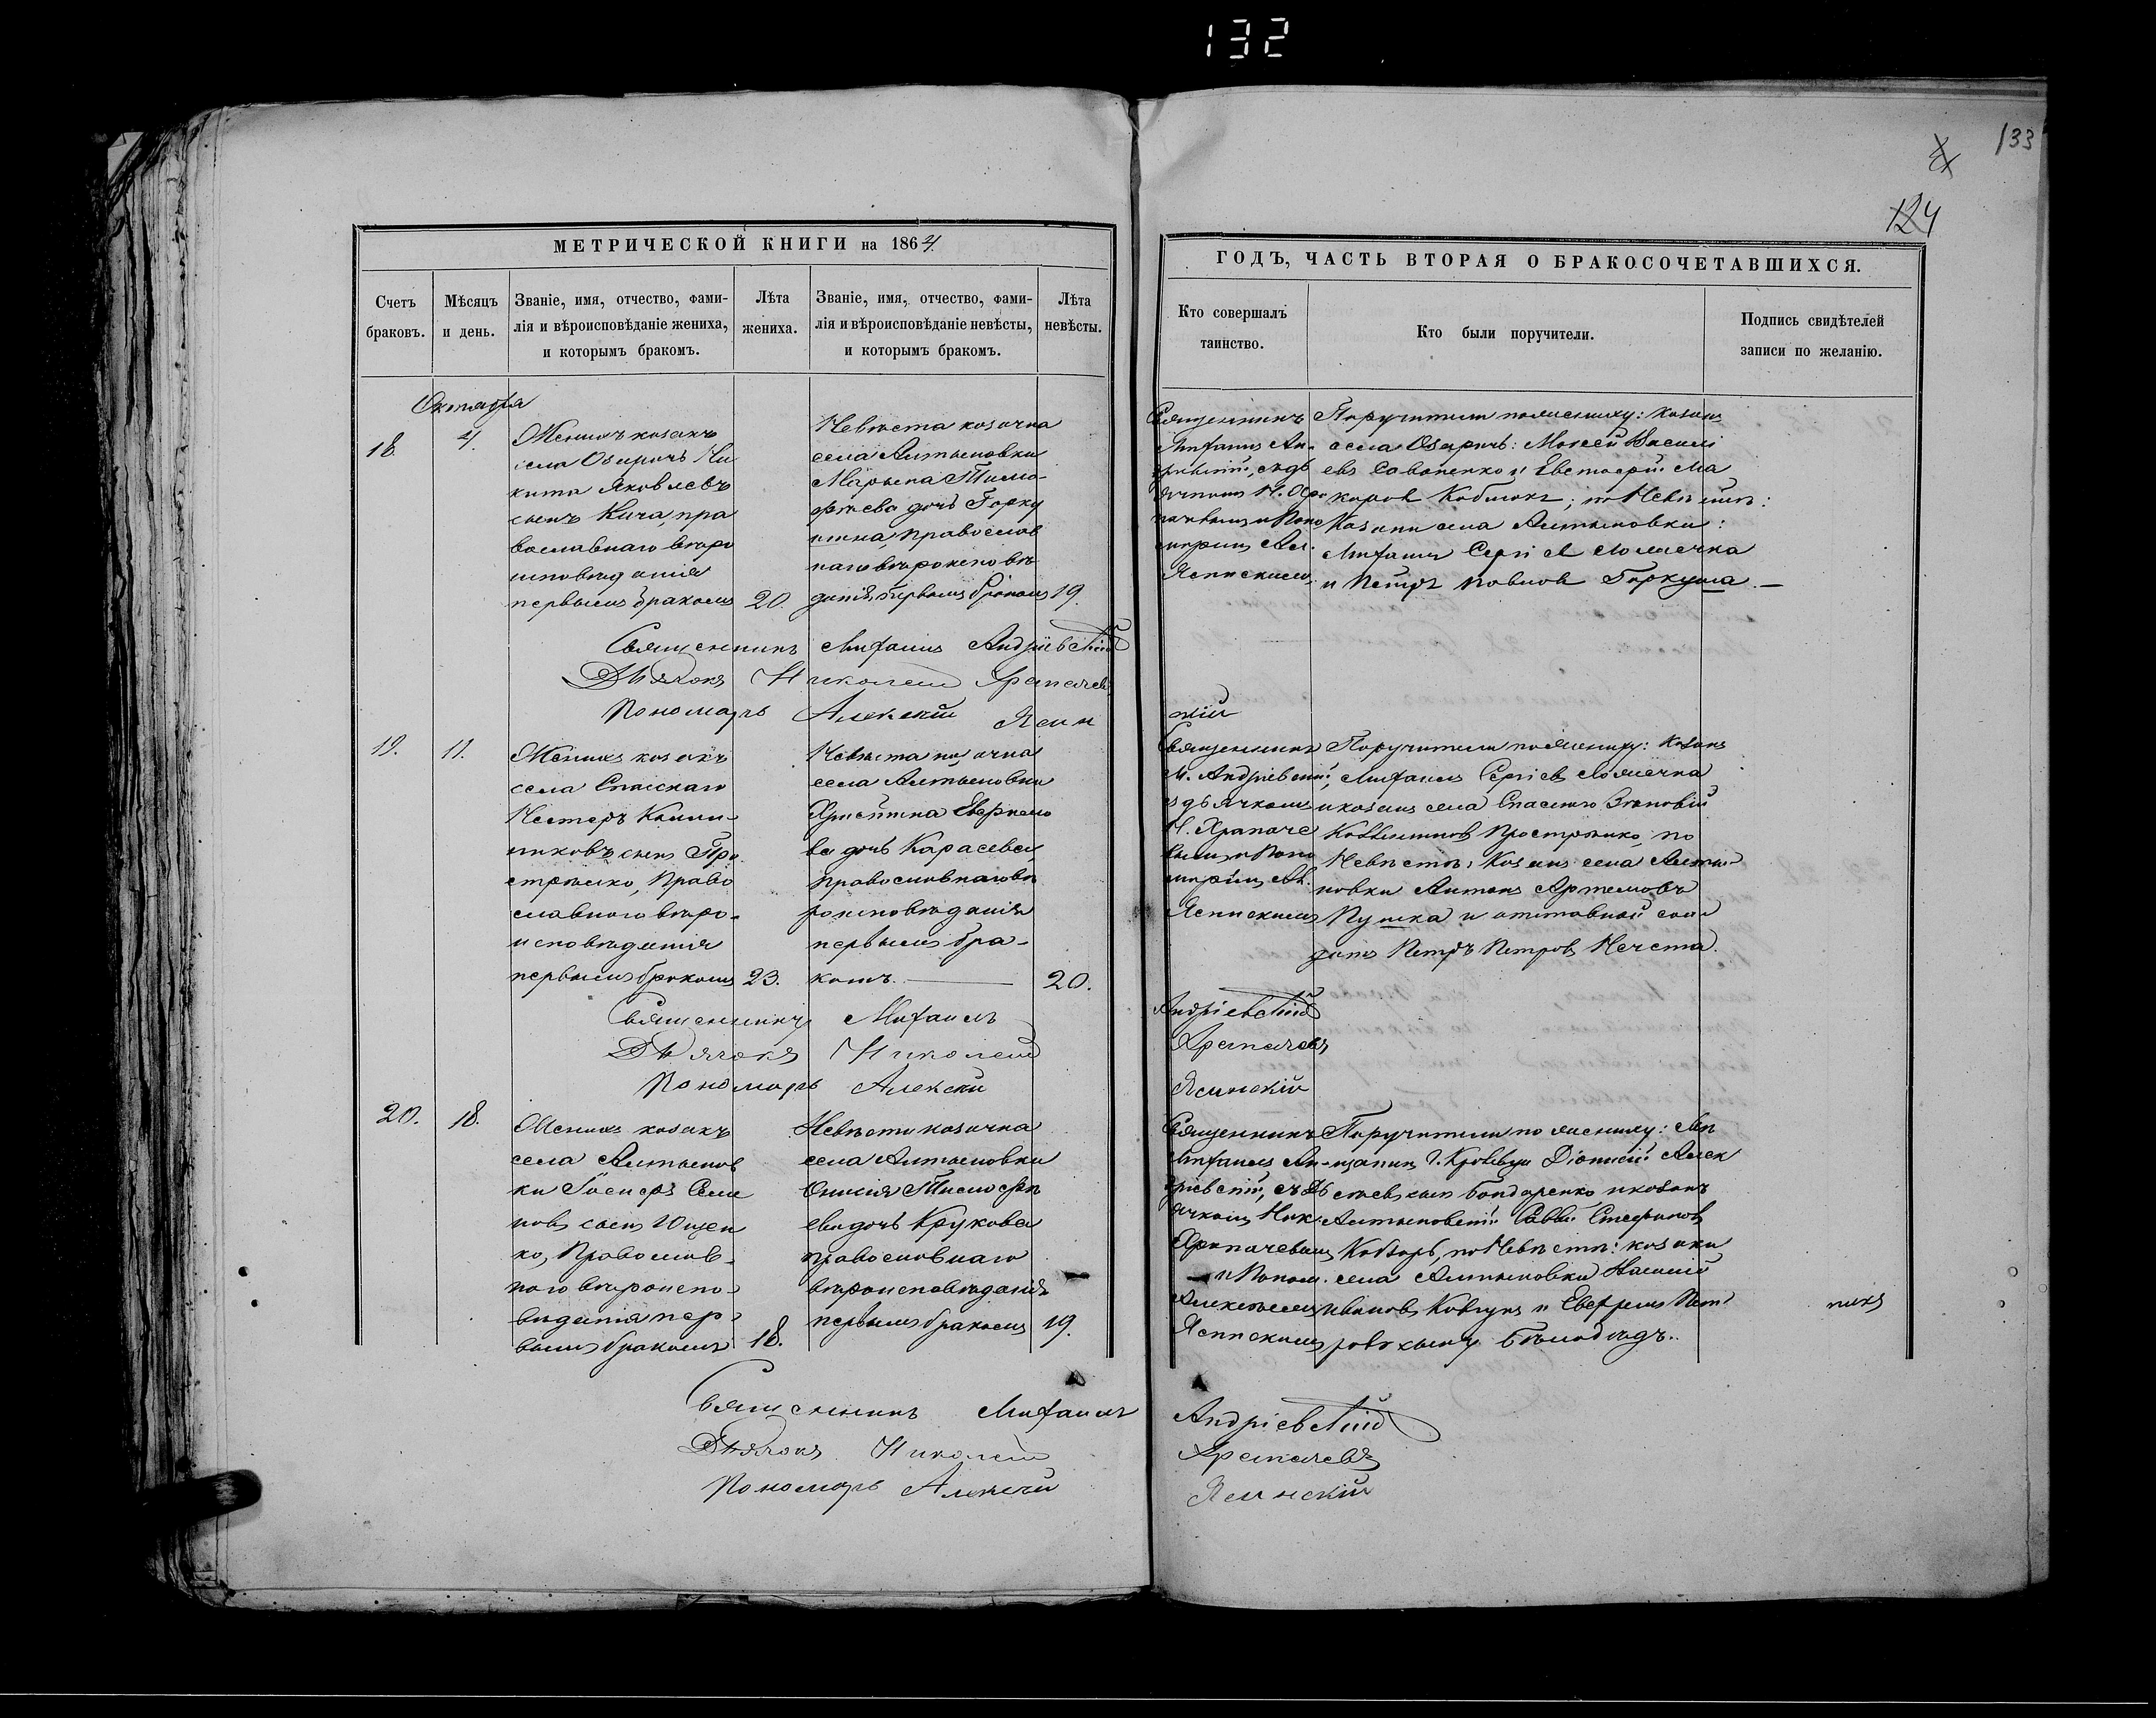 132
133
124
МЕТРИЧЕСКОЙ КНИГИ на 1864
ГОДЪ, ЧАСТЬ ВТОРАЯ О БРАКОСОЧЕТАВШИХСЯ.
Счетъ браковъ.
Мѣсяцъ и день.
Званіе, имя, отчество, фами-
лія и вѣроисповѣданіе жениха,
и которымъ бракомъ.
Лѣта жениха.
Званіе, имя, отчество, фами-
лія и вѣроисповѣданіе невѣсты,
и которымъ бракомъ.
Лѣта невѣсты.
Кто совершалъ таинство.
Кто были поручители.
Подпись свидѣтелей
записи по желанію.
Октября
18.
4.
Женихъ козакъ
села Озаричъ Ни
кита Яковлевъ
сынъ Кича, пра
вославнаго вѣро
исповѣданія
первымъ бракомъ
20.
Невѣста козачка
села Алтыновки
Марына Тимо-
фѣева дочь Горку
шина, православ
наго вѣроисповѣ
данія первымъ бракомъ
19.
Священникъ
Михаилъ Ан-
дріевскій, съ дь
ячкомъ Н. Хра
пачевымъ и Поно
маремъ Ал.
Ясинскимъ
Поручители по жениху: козаки
села Озаричъ: Моисей Василі
евъ Саваненко и Евстафій Ма
каровъ Коблокъ; по Невѣстѣ:
Козаки села Алтыновки:
Михаилъ Сергіевъ Ломячка
и Петръ Павловъ Горкуша.
Священникъ Михаилъ Андріевскій
Дьячокъ Николай Храпачевъ
Пономарь Алексѣй Ясин
скій
19.
11.
Женихъ козакъ
села Спасскаго
Нестеръ Калли-
никовъ сынъ Про
стрѣлко, Право
славнаго вѣро-
исповѣданія
первымъ бракомъ
23.
Невѣста козачка
села Алтыновки
Христина Аверкіе
ва дочь Карасева,
православнаго вѣ
роисповѣданія
первымъ бра-
комъ.
20.
Священникъ
М. Андріевскій,
съ дьячкомъ
Н. Храпаче
вымъ и Поно
маремъ Ал.
Ясинскимъ
Поручители по жениху: Козакъ
Михаилъ Сергіевъ Ломячка
и козакъ села Спасскаго Зѣновій
Каллиниковъ Прострѣлко, по
Невѣстѣ: Козакъ села Алты-
новки Антонъ Артемовъ
Пушка и отставной сол
датъ Петръ Петровъ Нечета.
Священникъ Михаилъ Андріевскій
Дьячокъ Николай Храпачевъ
Пономарь Алексѣй Ясинскій
20.
18.
Женихъ козакъ
села Алтынов
ки Іосифъ Семе
новъ сынъ Ющен
ко, Православ-
наго вѣроиспо-
вѣданія пер
вымъ бракомъ
18.
Невѣста козачка
села Алтыновки
Онисія Тимофѣ
ева дочь Крукова
православнаго
вѣроисповѣданія
первымъ бракомъ
19.
Священникъ
Михаилъ Ан-
дріевскій, съ Дь
ячкомъ Ник.
Храпачевымъ
и Поном.
Алексѣемъ
Ясинскимъ
Поручители по жениху: Мѣ
щанинъ Г. Кролевца Діонисій Алек
сѣевъ сынъ Бондаренко и козакъ
Алтыновскій Савва Стефановъ
Кобзарь, по Невѣстѣ: козаки
села Алтыновки Василій
Ивановъ Ковтунъ и Евфремъ Пет
ровъ сынъ Бѣлодѣдъ.
Священникъ Михаилъ Андріевскій
Дьячокъ Николай Храпачевъ
Пономарь Алексѣй Ясинскій